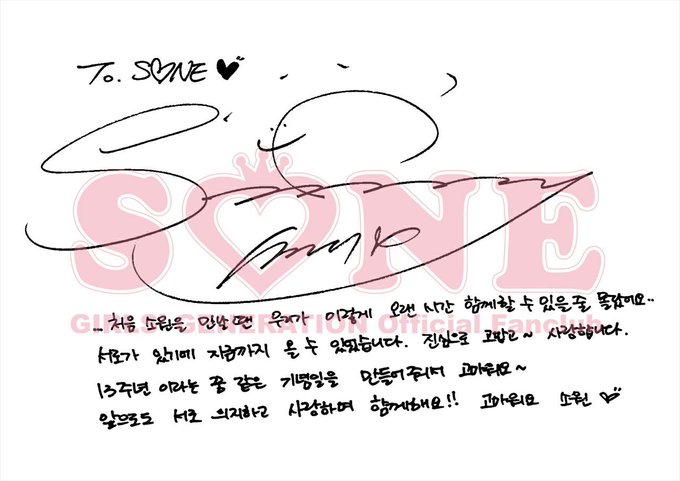 To. S♡NE ♥
S♡NE
GIRLS' GENERATION Official Fanclub
... 처음 소원을 만났을 땐 우리가 이렇게 오랜 시간 함께할 수 있을 줄 몰랐어요..
서로가 있기에 지금까지 올 수 있었습니다. 진심으로 고맙고~ 사랑합니다.
13주년 이라는 꿈 같은 기념일을 만들어주셔서 고마워요~
앞으로도 서로 의지하고 사랑하며 함께해요!! 고마워요 소원 ♡